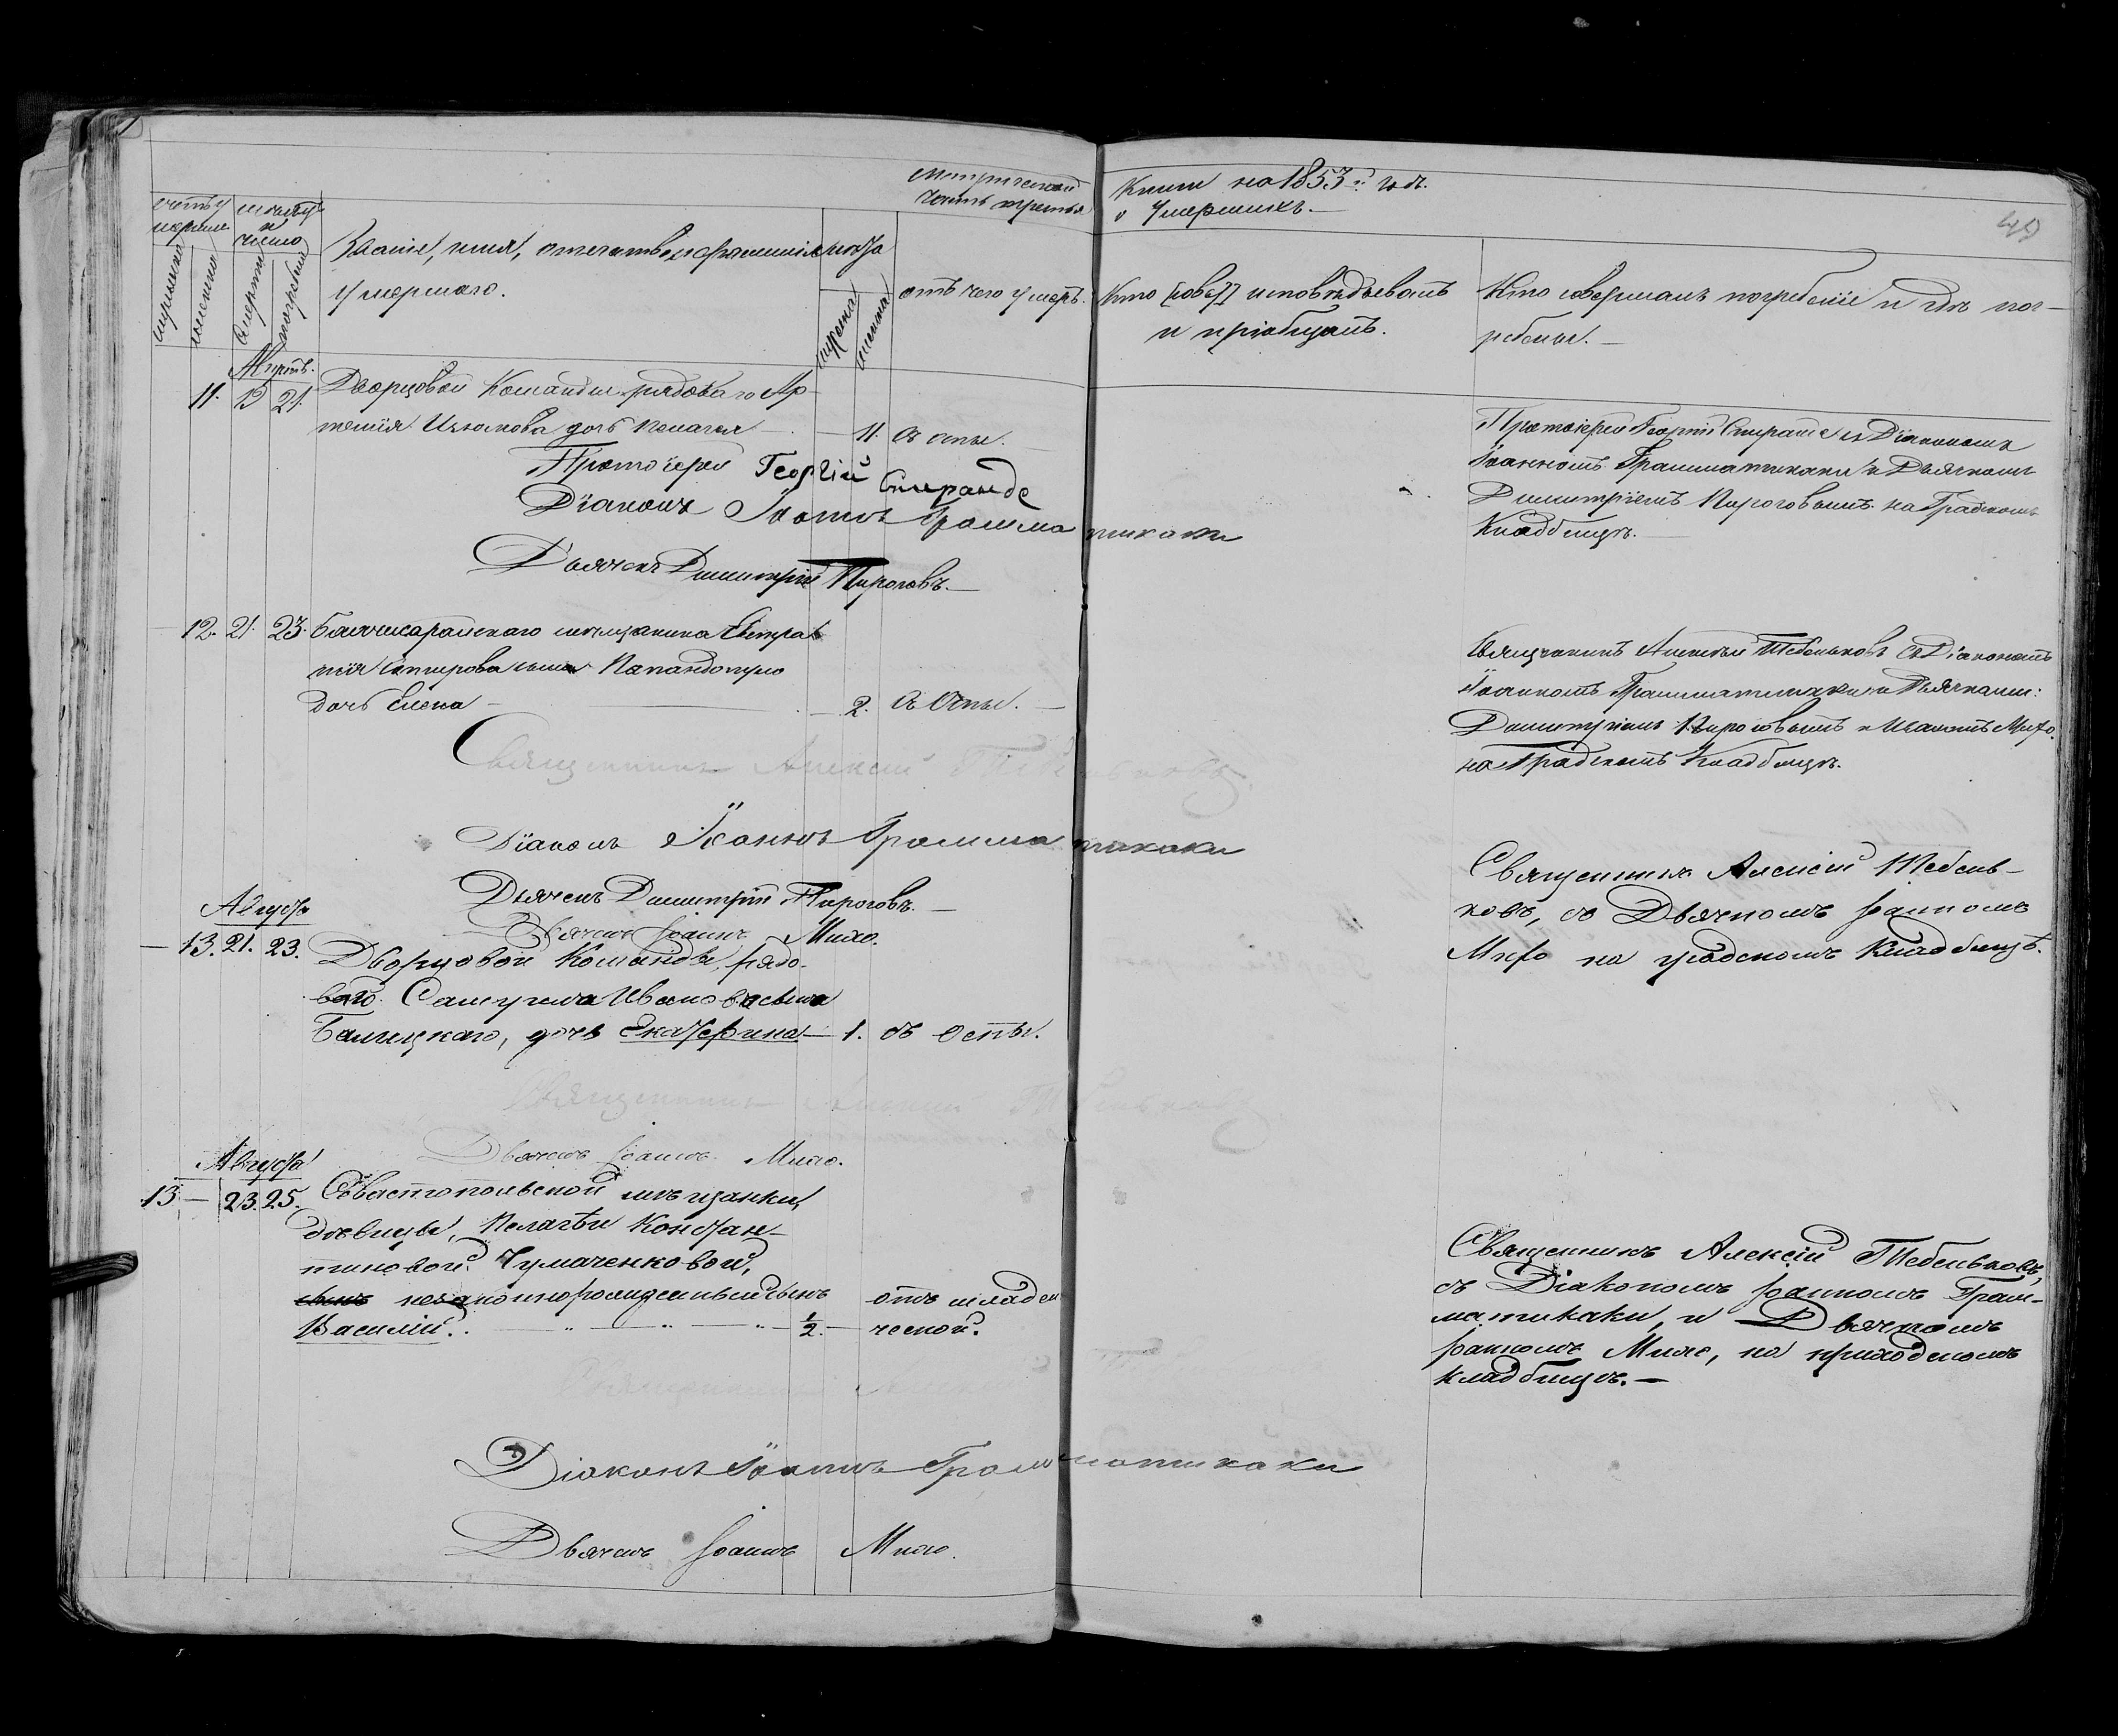 Метрической
часть третья
книги на 1853й годъ.
о Умершихъ.
49
счетъ у
мершихъ
мужеска
женска
месяцъ
и
число
смерти
погребенія
Званіе, имя, отечество и фамилія
умершаго.
лета
мужеска
женска
отъ чего умеръ.
Кто исповѣдывалъ
и пріобщалъ.
Кто совершалъ погребеніе и гдѣ пог-
ребены.
11. 19 21.
Дворцовой Команды рядоваго Ар-
темія Изюмова дочь Пелагея 11. съ оспы.
Протоіерей Георгій Спиранде съ Діакономъ
Іоанномъ Грамматикаки и Дьячкомъ
Димитріемъ Пироговымъ на Градскомъ
Кладбищѣ.
Протоіерей Георгій Спиранде
Діаконъ Іоаннъ Грамматикаки
Дьячекъ Димитрій Пироговъ.
12. 21. 23. Бахчисарайскаго мѣщанина Евстра
тія Спирова сына Папандопуло
дочь Елена 2. съ Оспы.
Священникъ Алексѣй Тебеньковъ съ Діакономъ
Іоанномъ Грамматикаки и Дьячками:
Димитріемъ Пироговымъ и Иваномъ Михо.
на Градскомъ Кладбищѣ.
Священникъ Алексій Тебеньковъ
Діаконъ Іоаннъ Грамматикаки
Дьячекъ Димитрій Пироговъ.
Дьячекъ Іоаннъ Михо.
Августа
13. 21. 23. Дворцовой Команды, рядо-
ваго Самуила Иванова сына
Балицкаго, дочь Екатерина 1. съ оспы.
Священникъ Алексій Тебень-
ковъ, съ Дьячкомъ Іоанномъ
Михо на градскомъ Кладбищѣ.
Священникъ Алексій Тебеньковъ
Дьячекъ Іоаннъ Михо.
Августа
13 — 23. 25. Севастопольской мѣщанки,
дѣвицы, Пелагѣи Констан-
тиновой Чумаченковой,
сынъ незаконнорожденный сынъ отъ младен
Василій. 1/2. ческой.
Священникъ Алексій Тебеньковъ,
съ Діакономъ Іоанномъ Грам-
матикаки, и Дьячкомъ
Іоанномъ Михо, на приходскомъ
кладбищѣ.—
Діаконъ Іоаннъ Грамматикаки
Дьячекъ Іоаннъ Михо.